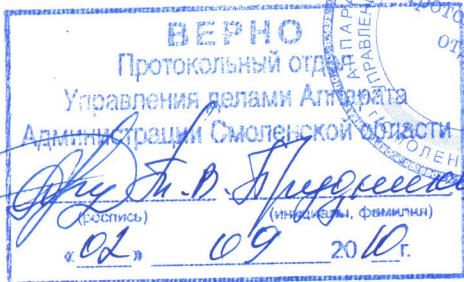 ВЕРНО
Протокольный отдел
Управления делами Аппарата
Администрации Смоленской области
Т.В.
(роспись) (инициалы, фамилия)
«02» 09 2010г.